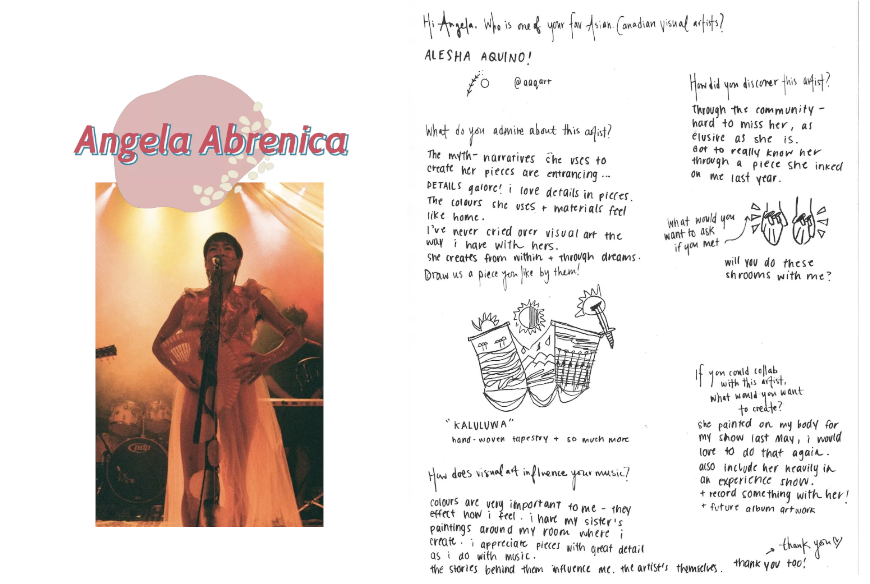 Angela Abrenica
Hi Angela. Who is one of your fav Asian-Canadian visual artists?
ALESHA AQUINO!
@aaqart
What do you admire about this artist?
The myth-narratives she uses to
create her pieces are entrancing...
DETAILS galore! i love details in pieces.
The colours she uses + materials feel
like home.
I've never cried over visual art the
way i have with hers.
she creates from within + through dreams.
Draw us a piece you like by them!
"KALULUWA"
hand-woven tapestry + so much more
How does visual art influence your music?
colours are very important to me - they
effect how i feel. i have my sister's
paintings around my room where i
create. i appreciate pieces with great detail
as i do with music.
the stories behind them influence me. the artist's themselves.
How did you discover this artist?
Through the community -
hard to miss her, as
elusive as she is.
Got to really know her
through a piece she inked
on me last year.
what would you
want to ask
if you met
will you do these
shrooms with me?
If you could collab
with this artist,
what would you want
to create?
she painted on my body for
my show last May, i would
love to do that again.
also include her heavily in
an experience show.
+ record something with her!
+ future album artwork
thank you
thank you too!
pdp